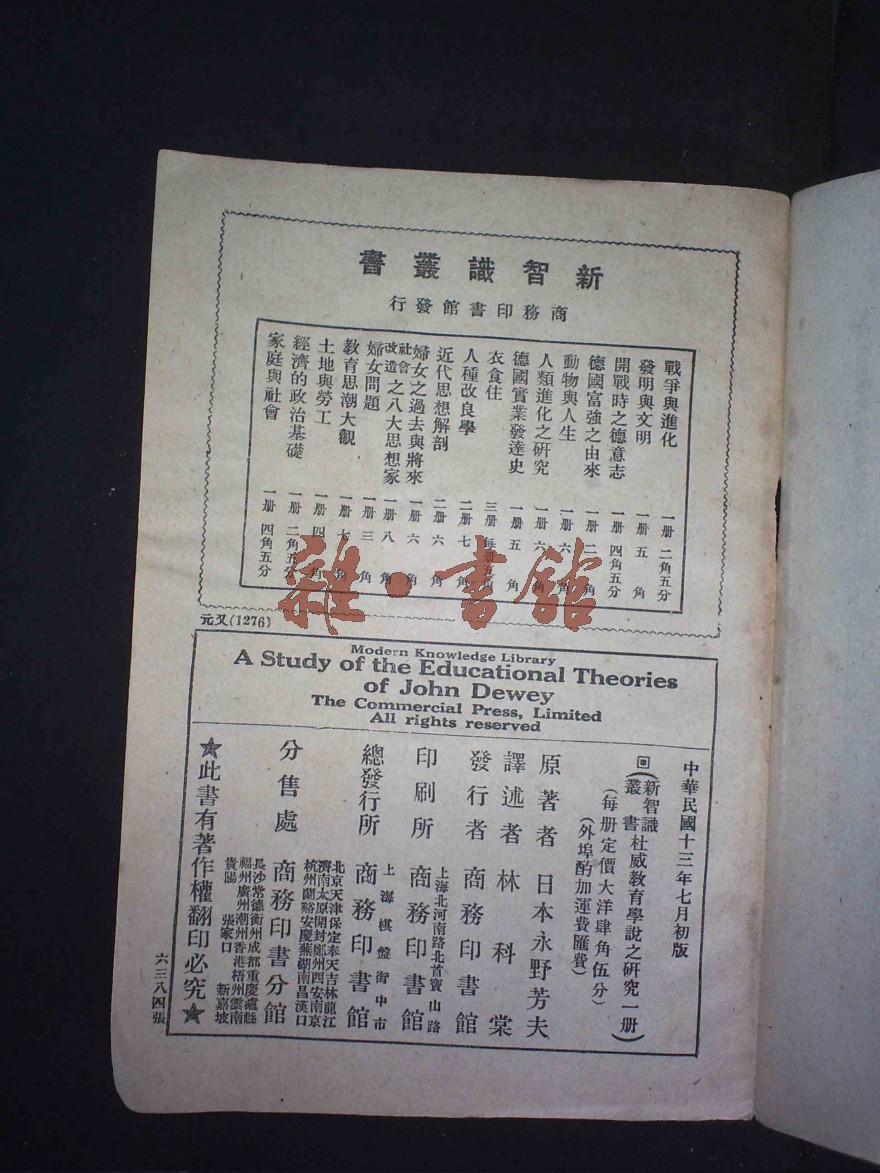 新智識叢書
商務印書館發行
戰爭與進化 一册 二角五分
發明與文明 一册 五角
開戰時之德意志 一册 四角五分
德國富強之由來 一册 二角
動物與人生 一册 六角
人類進化之研究 一册 六角
德國實業發達史 一册 五角
衣食住 三册 每册五角
人種改良學 二册 七角
近代思想解剖 二册 六角
婦女之過去與將來 一册 六角
社會改造之八大思想家 一册 八角
婦女問題 一册 三角
教育思潮大觀 一册 七角
土地與勞工 一册 四角
經濟的政治基礎 一册 二角五分
家庭與社會 一册 四角五分
元又(1276)
雜·書館
Modern Knowledge Library
A Study of the Educational Theories
of John Dewey
The Commercial Press, Limited
All rights reserved
中華民國十三年七月初版
回(新智識叢書杜威教育學說之研究一册)
(每册定價大洋肆角伍分)
(外埠酌加運費匯費)
原著者 日本永野芳夫
譯述者 林科棠
發行者 商務印書館
上海北河南路北首寶山路
印刷所 商務印書館
上海棋盤街中市
總發行所 商務印書館
北京天津保定奉天吉林龍江
濟南太原開封鄭州西安南京
杭州蘭谿安慶蕪湖南昌漢口
分售處 商務印書分館
長沙常德衡州成都重慶瀘縣
福州廣州潮州香港梧州雲南
貴陽 張家口 新嘉坡
★此書有著作權翻印必究★
六三八四張